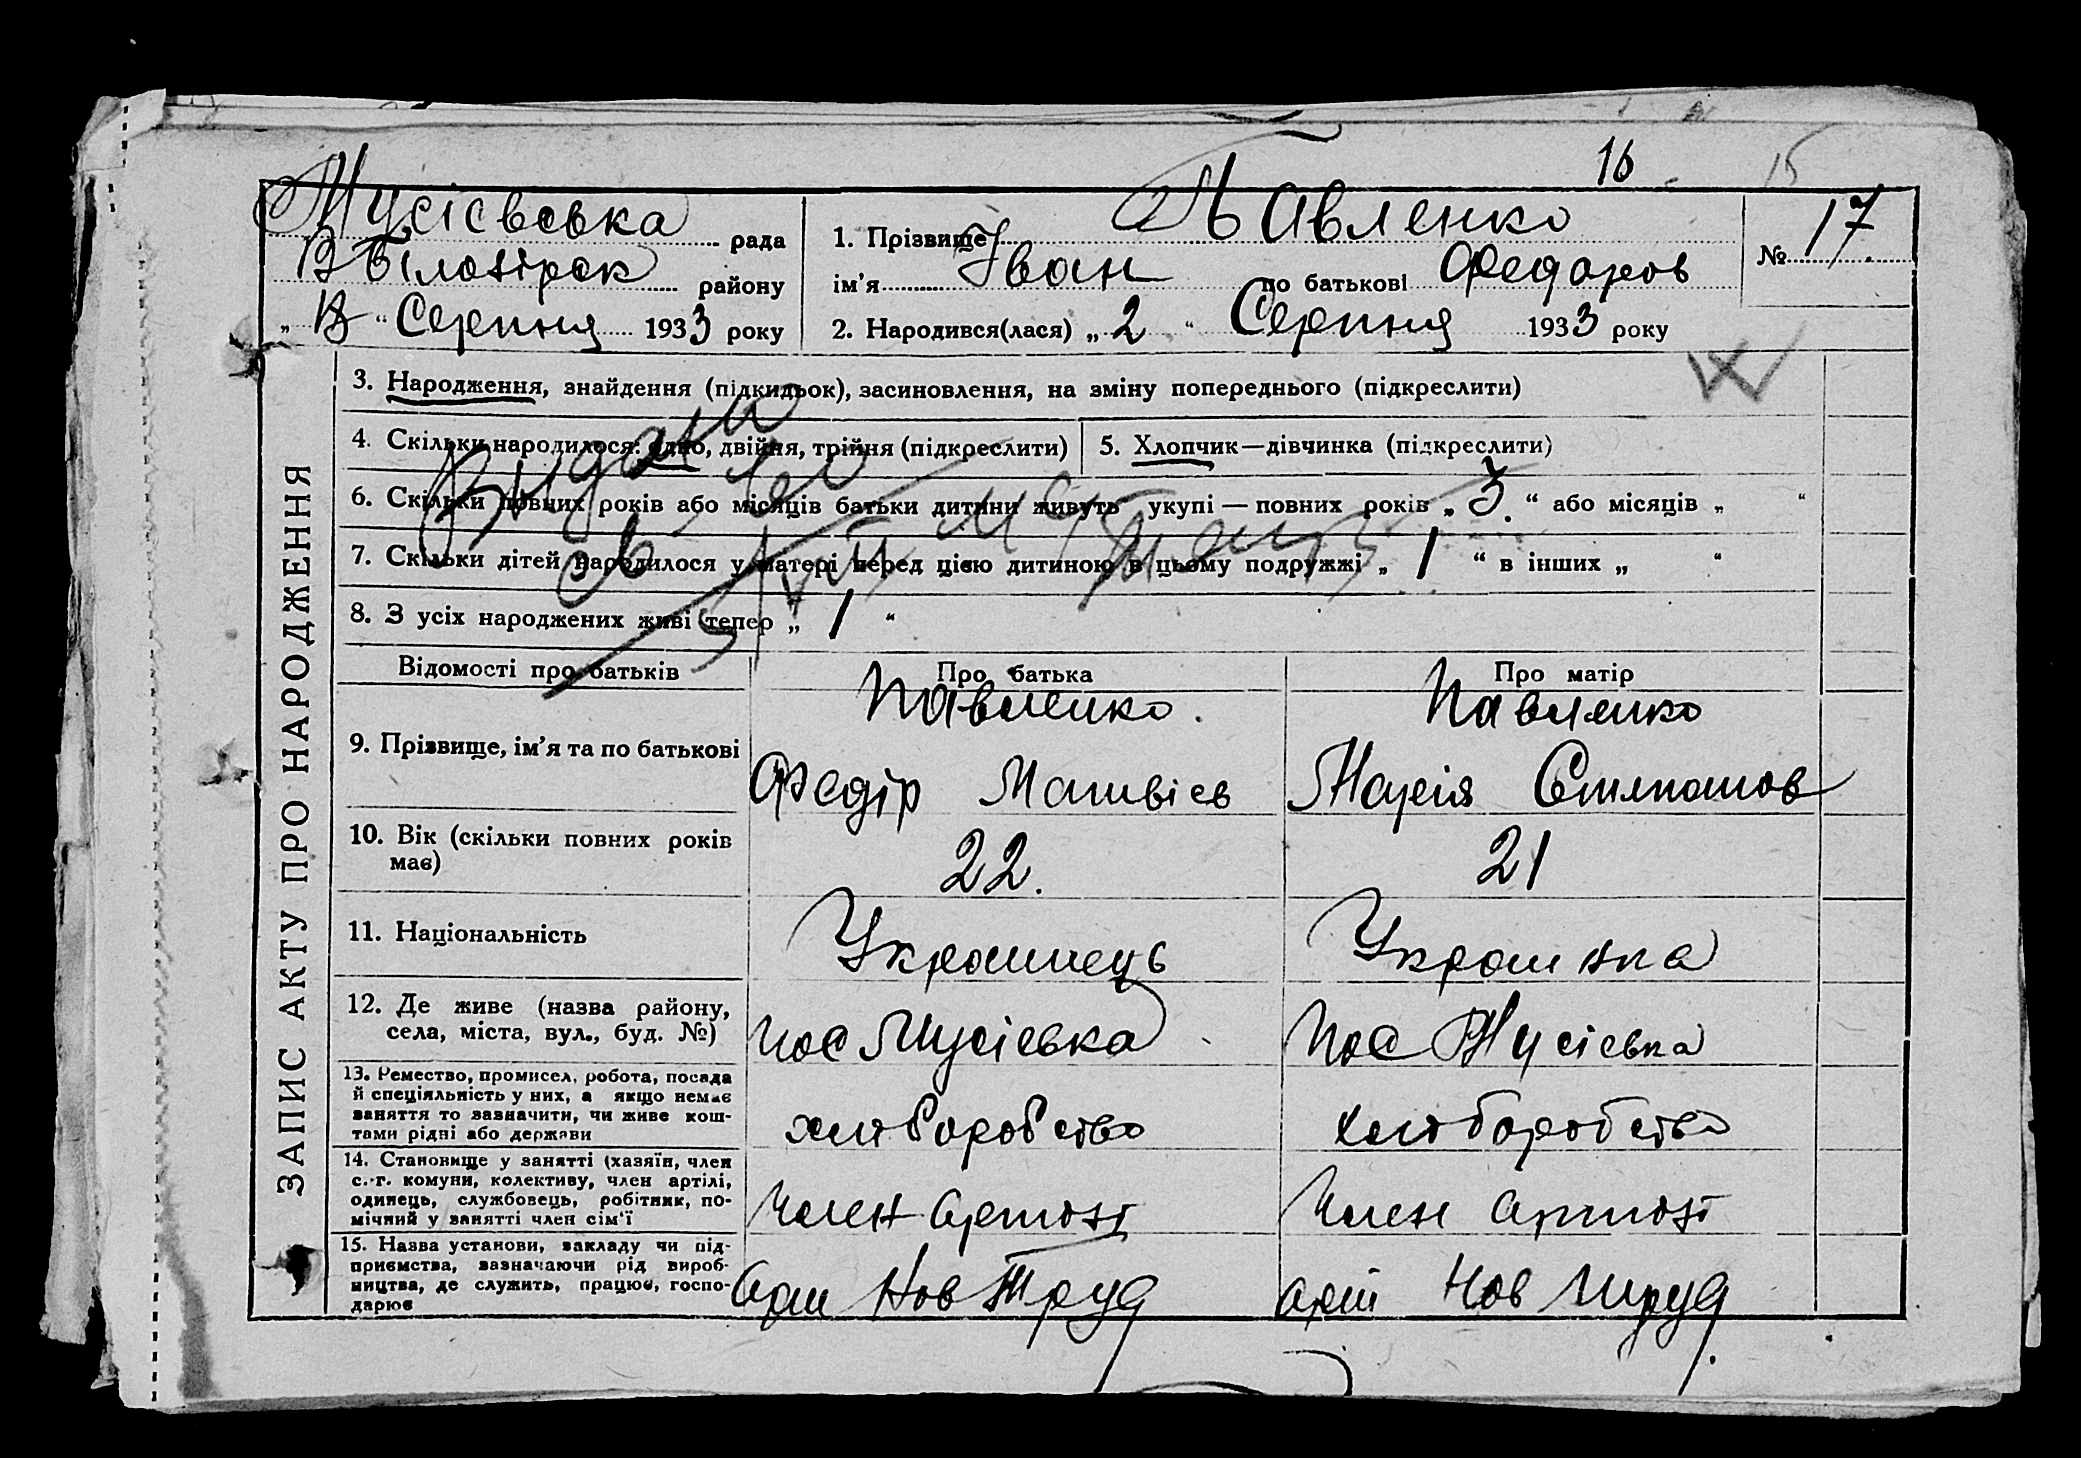 16 15
Мусієвська рада
В Білозірск району
„ 13 “ Серпня 1933 року
1. Прізвище Павленко
ім'я Іван по батькові Федоров
2. Народився(лася) „ 2 “ Серпня 1933 року
№ 17
ЗАПИС АКТУ ПРО НАРОДЖЕННЯ
3. Народження, знайдення (підкидьок), засиновлення, на зміну попереднього (підкреслити)
4. Скільки народилося: одно, двійня, трійня (підкреслити)
5. Хлопчик—дівчинка (підкреслити)
6. Скільки повних років або місяців батьки дитини живуть укупі — повних років „ 3. “ або місяців „ “
7. Скільки дітей народилося у матері перед цією дитиною в цьому подружжі „ 1 “ в інших „ “
8. З усіх народжених живі тепер „ 1 “
Видано
Відомості про батьків Про батька Про матір
9. Прізвище, ім'я та по батькові
Павленко. Павленко
Федір Матвієв Марія Степанов
10. Вік (скільки повних років має) 22. 21
11. Національність Украинець Украинка
12. Де живе (назва району,
села, міста, вул., буд. №) пос Мусієвка Пос Мусієвка
13. Ремество, промисел, робота, посада
й спеціяльність у них, а якщо немає
заняття то зазначити, чи живе кош-
тами рідні або держави
хліборобство хліборобство
14. Становище у занятті (хазяїн, член
с.-г. комуни, колективу, член артілі,
одинець, службовець, робітник, по-
мічний у занятті член сім'ї
Член артілі Член артілі
15. Назва установи, закладу чи під-
приємства, зазначаючи рід вироб-
ництва, де служить, працює, госпо-
дарює
Арт Нов Труд арт Нов Труд